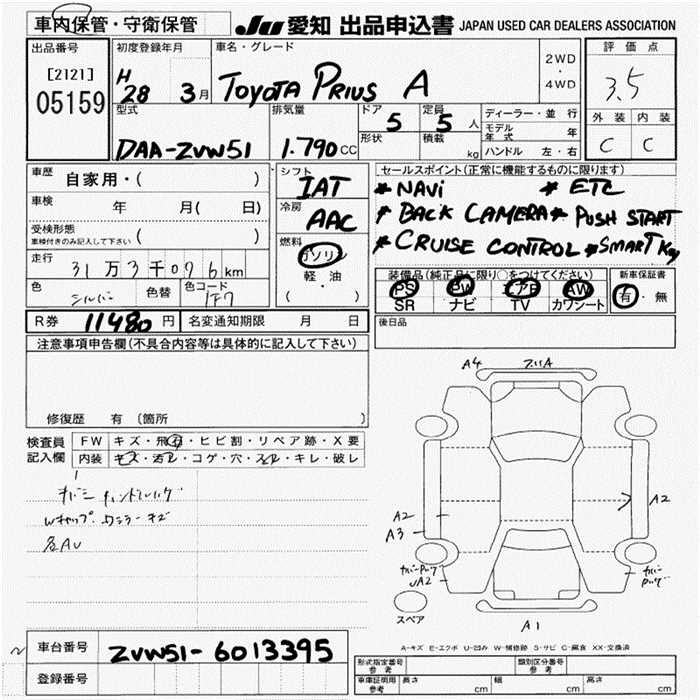 車内保管・守衛保管
JU 愛知 出品申込書 JAPAN USED CAR DEALERS ASSOCIATION
出品番号 初度登録年月 車名・グレード 評価点
[2121]
05159
H 28 3月 TOYOTA PRIUS A 2WD・4WD 3.5
型式 排気量 ドア 定員 ディーラー・並行 外装 内装
5 5人 モデル年式 年
DAA-ZVW51 1.790CC 形状 積載 kg ハンドル 左・右 C C
車歴 自家用・( ) シフト IAT セールスポイント(正常に機能するものに限ります)
車検 年 月( 日) 冷房 AAC * NAVi * ETC
受検形態 ( ) * BACK CAMERA * PUSH START
車検付きのみ記入して下さい 燃料 ガソリン * CRUISE CONTROL * SMART Key
走行 31万3千076km 軽・油 装備品(純正品に限り○をつけてください) 新車保証書
色 シルバー 色替 色コード 1F7 ( ・ ) PS PW エアB AW 有・無
SR ナビ TV カワシート
R券 11480円 名変通知期限 月 日 後日品
注意事項申告欄(不具合内容等は具体的に記入して下さい)
修復歴 有 〔箇所 〕
検査員記入欄 FW キズ・飛石・ヒビ割・リペア跡・X要
内装 キズ・汚レ・コゲ・穴・スレ・キレ・破レ
Wキャップ.
各AU
A4 A
A2
A2
A3
A2
スペア
A1
A-キズ E-エクボ U-凹み W-補修跡 S-サビ C-腐食 XX-交換済
車台番号 ZVW51-6013395
登録番号
型式指定番号 参考 類別区分番号 参考
車庫証明用 参考 長さ cm 幅 cm 高さ cm